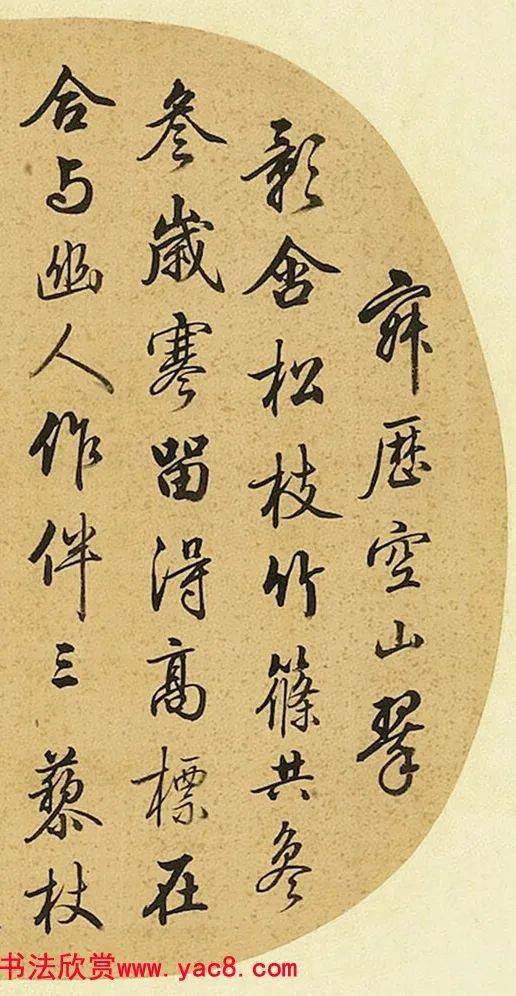 寂歴空山翠
影含松枝竹篠共參
參歳寒留得高標在
合与幽人作伴三藜杖
书法欣赏www.yac8.com